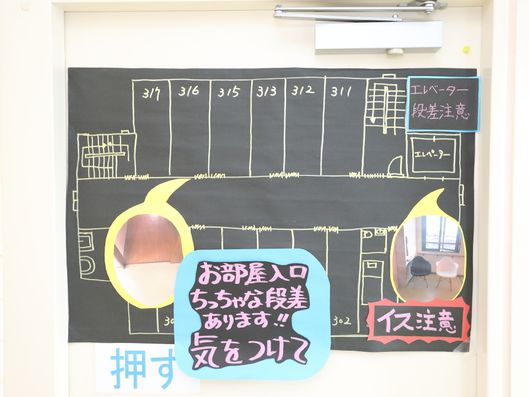 317 316 315 313 312 311
エレベーター
段差注意
エレベーター
お部屋入口
ちっちゃな段差
あります!!
気をつけて
302
イス注意
押す